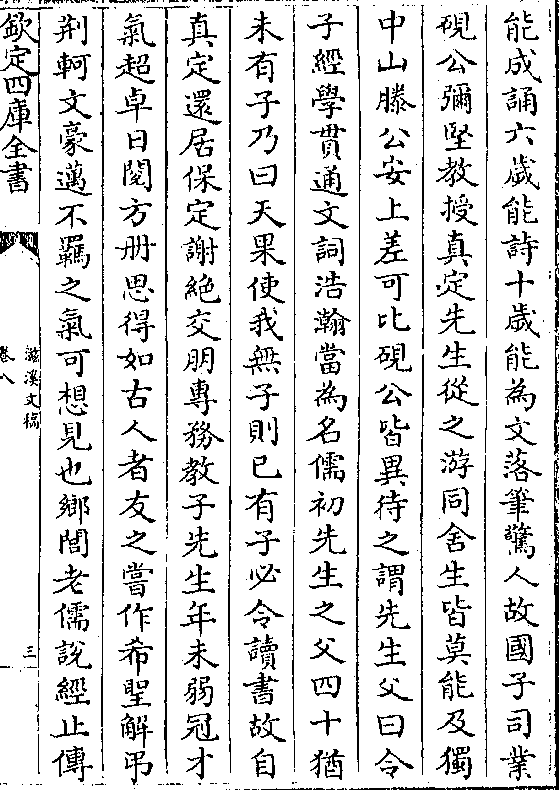 能成誦六歲能詩十歲能為文落筆驚人故國子司業
硯公彌堅教授真定先生從之游同舍生皆莫能及獨
中山滕公安上差可比硯公皆異待之謂先生父曰令
子經學貫通文詞浩瀚當為名儒初先生之父四十猶
未有子乃曰天果使我無子則已有子必令讀書故自
真定還居保定謝絶交朋專務教子先生年未弱冠才
氣超卓日閱方册思得如古人者友之嘗作希聖解弔
荆軻文豪邁不羈之氣可想見也鄉閭老儒說經止傳
欽定四庫全書
滋溪文稿
卷八
三